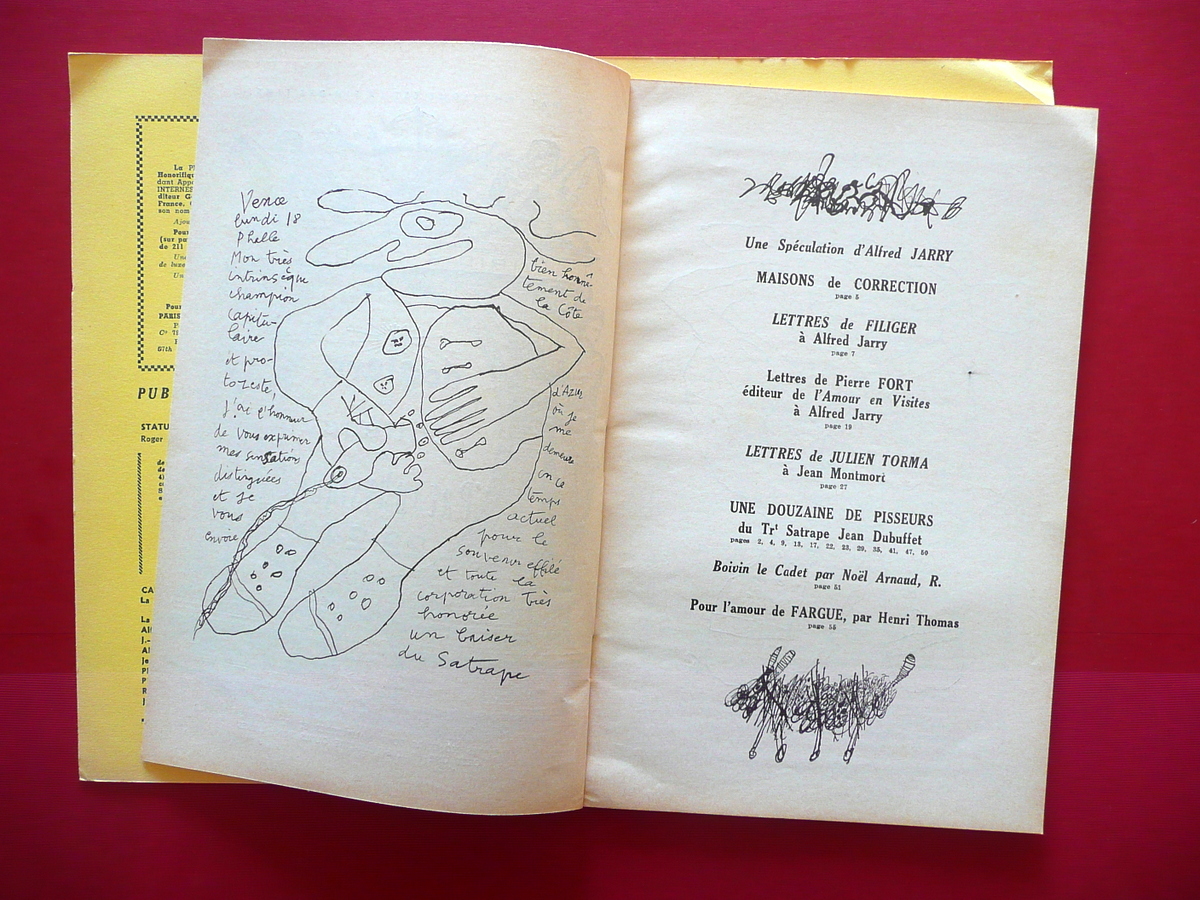 La P
Honorifiq
dant App
INTERNE
diteur G
France.
son nom
Ajou
Pour
(sur pa
de 211
Une
de luxe
Un
Pour
PARIS
Cᵗ 71
67th
PUB
STATU
Roger
CA
La
La
Al
J.-
Al
Je
Ph
P
R
J
Vence
lundi 18
Phalle
Mon très
intrinsèque
champion
capitu-
laire
et pro-
tozeste,
j'ai l'honneur
de vous exprimer
mes sensations
distinguées
et je
vous
envoie
bien honnê-
tement de
la Côte
d'Azur
où je
me
demeure
en ce
temps
actuel
pour le
souvenir effilé
et toute la
corporation très
honorée
un baiser
du Satrape
Une Spéculation d'Alfred JARRY
MAISONS de CORRECTION
page 5
LETTRES de FILIGER
à Alfred Jarry
page 7
Lettres de Pierre FORT
éditeur de l'Amour en Visites
à Alfred Jarry
page 19
LETTRES de JULIEN TORMA
à Jean Montmort
page 27
UNE DOUZAINE DE PISSEURS
du Trᵗ Satrape Jean Dubuffet
pages 2, 4, 9, 13, 17, 22, 23, 29, 35, 41, 47, 50
Boivin le Cadet par Noël Arnaud, R.
page 51
Pour l'amour de FARGUE, par Henri Thomas
page 55